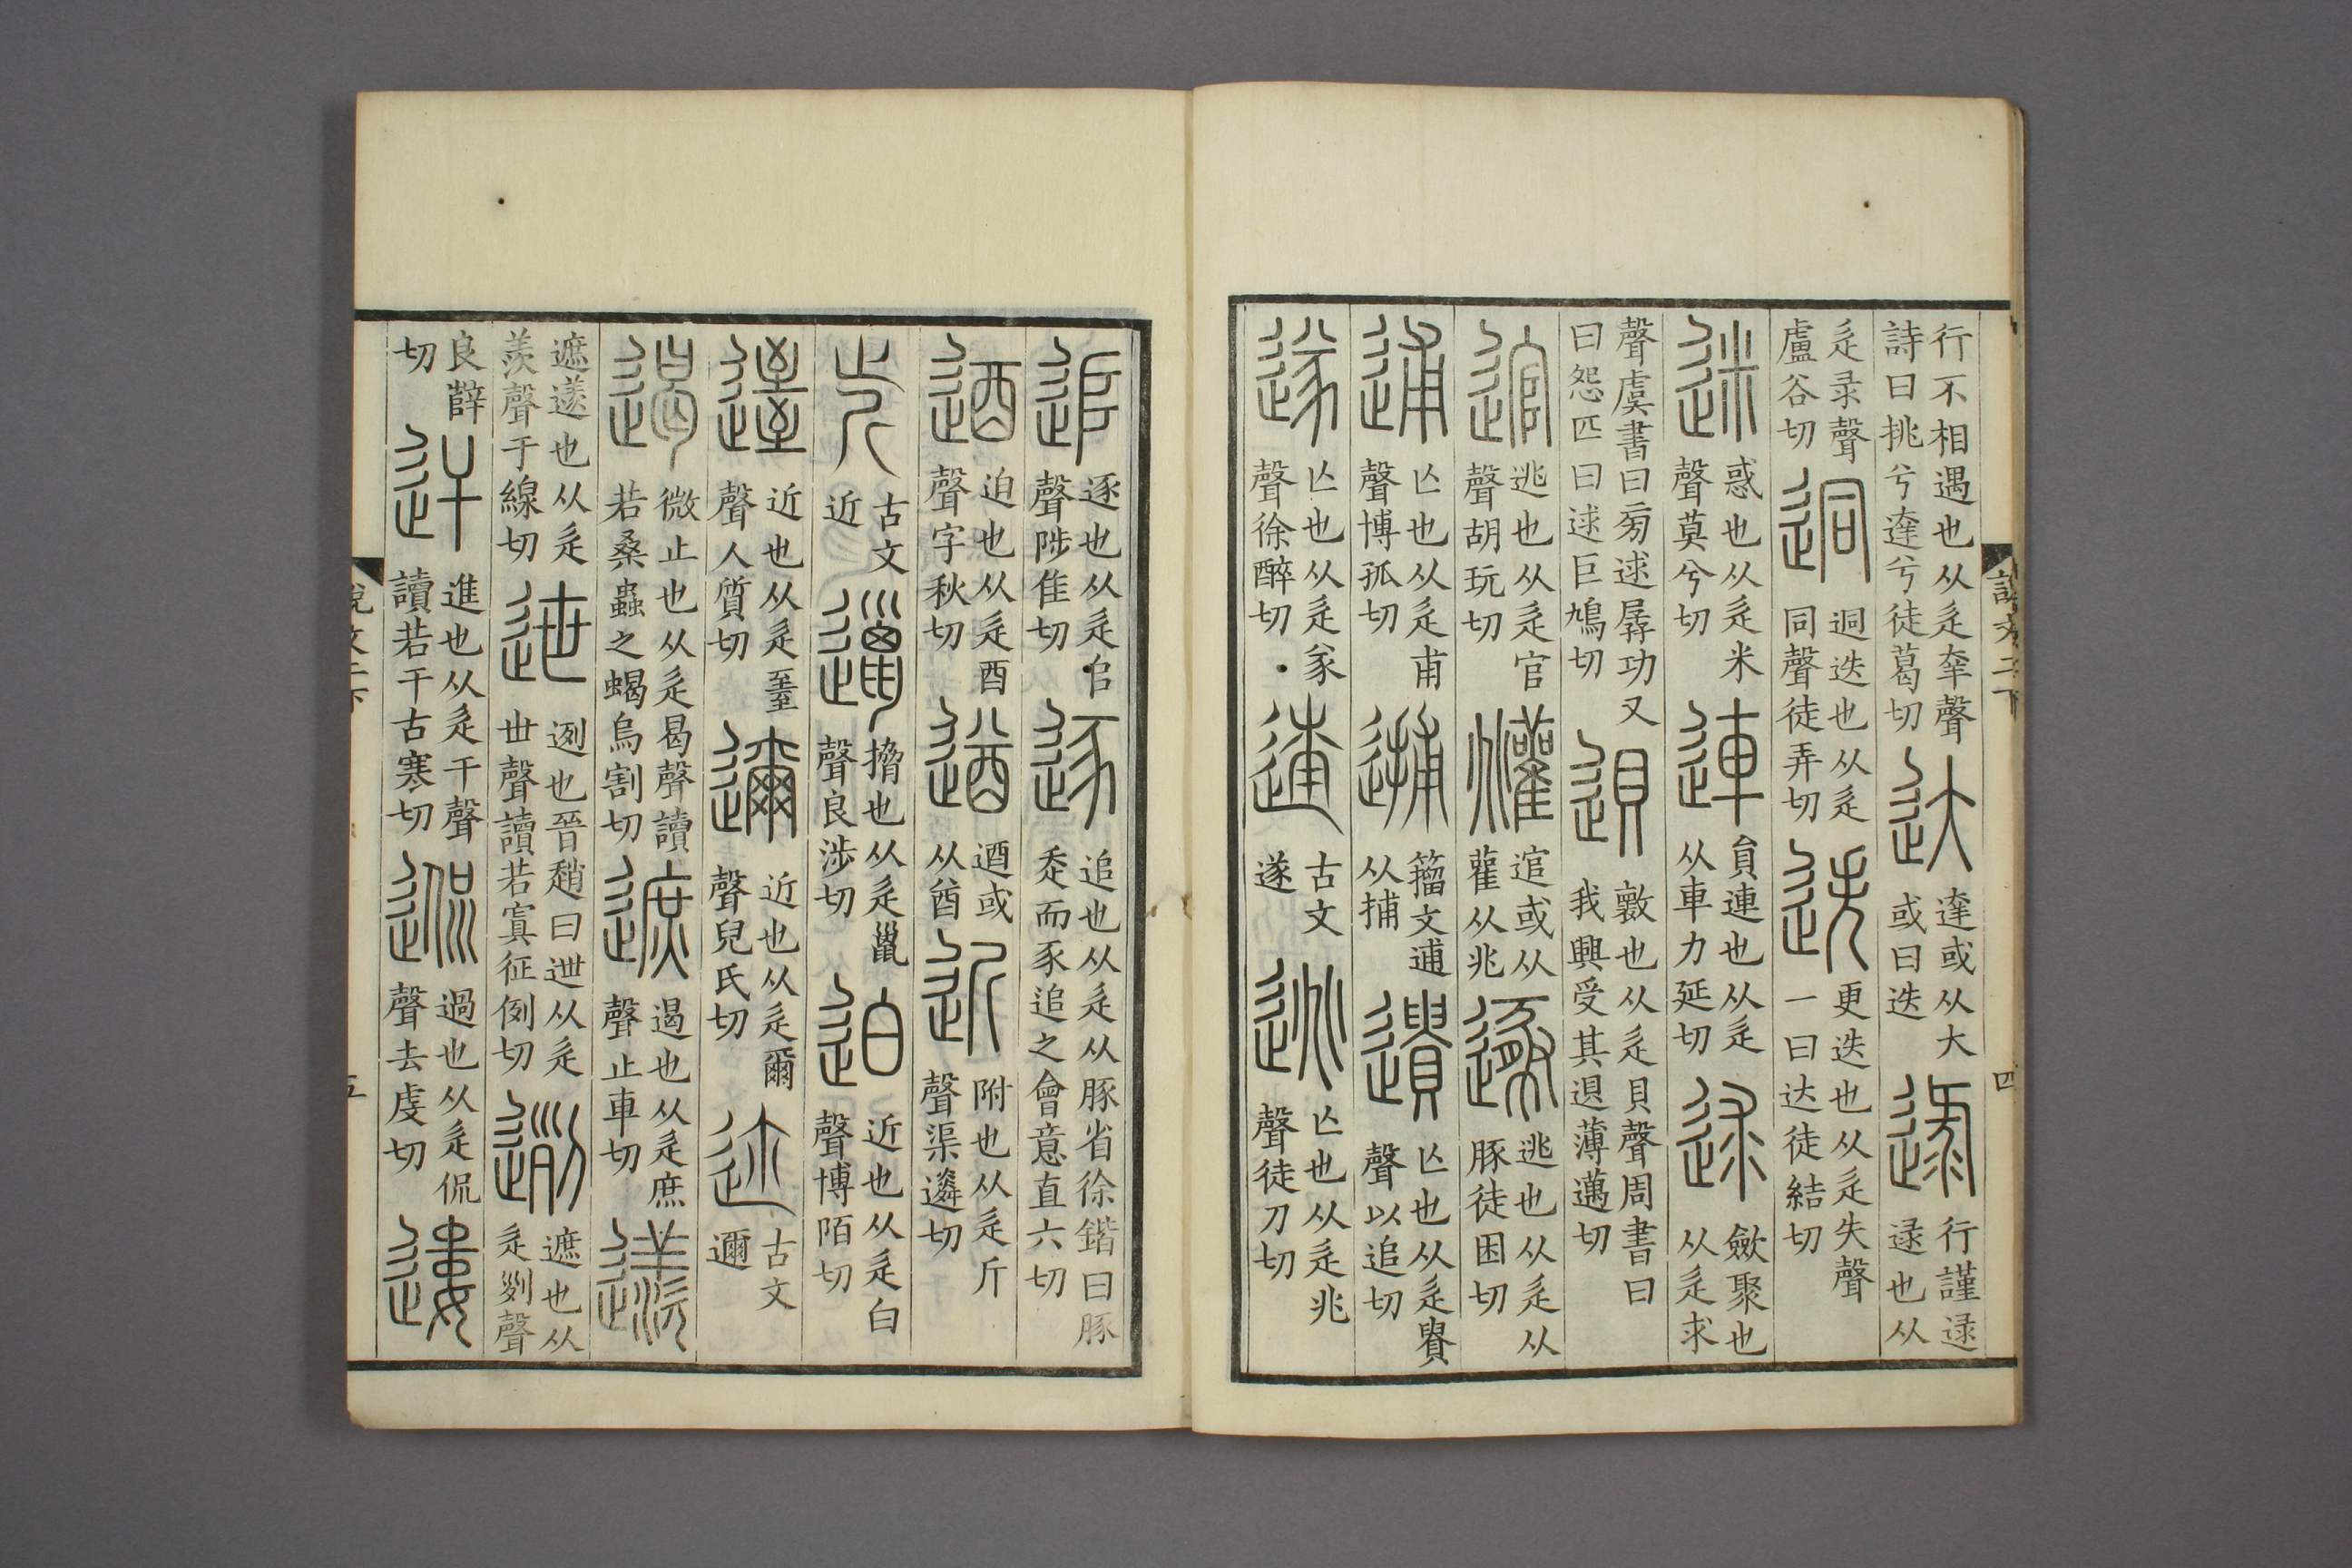 說文二下
四
行不相遇也从辵羍聲
詩曰挑兮達兮徒葛切
达
達或从大
或曰迭
逯
行謹逯
逯也从
辵录聲
盧谷切
迵
迵迭也从辵
同聲徒弄切
迭
更迭也从辵失聲
一曰达徒結切
迷
惑也从辵米
聲莫兮切
連
員連也从辵
从車力延切
逑
斂聚也
从辵求
聲虞書曰㫄逑孱功又
曰怨匹曰逑巨鳩切
𨓤
𣀩也从辵貝聲周書曰
我興受其𨓤薄邁切
逭
逃也从辵官
聲胡玩切
逭或从
雚从兆
遯
逃也从辵从
豚徒困切
逋
亾也从辵甫
聲博孤切
籒文逋
从捕
遺
亾也从辵𧶠
聲以追切
遂
亾也从辵㒸
聲徐醉切
古文
遂
逃
亾也从辵兆
聲徒刀切
追
逐也从辵𠂤
聲陟隹切
逐
追也从辵从豚省徐鍇曰豚
走而豕追之會意直六切
逎
迫也从辵酉
聲字秋切
遒
逎或
从酋
近
附也从辵斤
聲渠遴切
古文
近
邋
搚也从辵巤
聲良涉切
迫
近也从辵白
聲博陌切
近也从辵臸
聲人質切
邇
近也从辵爾
聲兒氏切
迩
古文
邇
遏
微止也从辵曷聲讀
若桑蟲之蝎烏割切
遮
遏也从辵庶
聲止車切
𨘢
遮𨘢也从辵
羨聲于線切
迣
迾也晉趙曰迣从辵
丗聲讀若寘征例切
迾
遮也从
辵𠛱聲
良薛
切
迀
進也从辵干聲
讀若干古寒切
過也从辵侃
聲去虔切
遱
說文二下
五